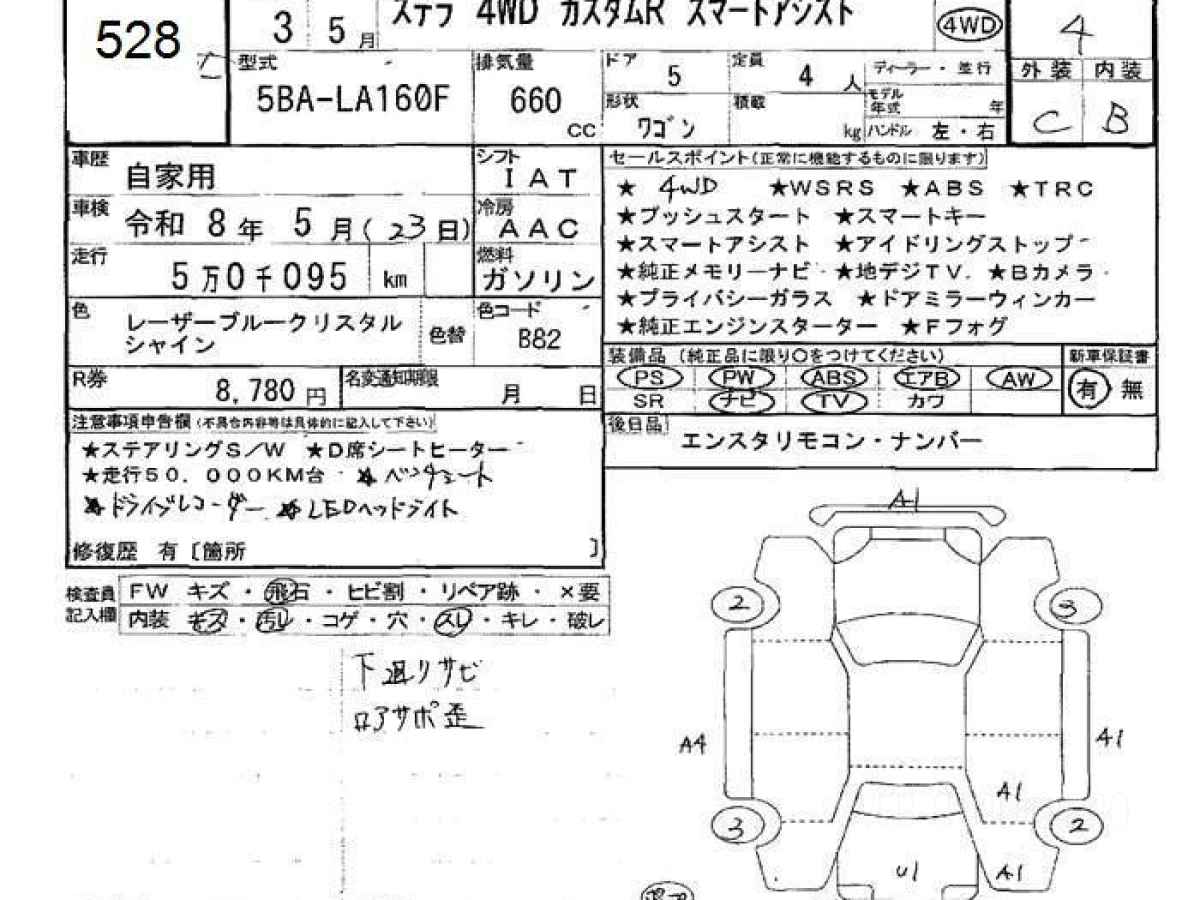 528
3 5月
ステラ 4WD カスタムR スマートアシスト
4WD
4
型式
5BA-LA160F
排気量
660
CC
ドア
5
定員
4 人
ディーラー・並行
形状
ワゴン
積載
kg
モデル年式
年
ハンドル 左・右
外装 内装
C B
車歴
自家用
シフト
IAT
車検
令和 8年 5月(23日)
冷房
AAC
走行
5万0千095 km
燃料
ガソリン
色
レーザーブルークリスタル
シャイン
色替
色コード
B82
R券
8,780円
名変通知期限
月 日
セールスポイント(正常に機能するものに限ります)
★4WD ★WSRS ★ABS ★TRC
★プッシュスタート ★スマートキー
★スマートアシスト ★アイドリングストップ
★純正メモリーナビ ★地デジTV. ★Bカメラ
★プライバシーガラス ★ドアミラーウィンカー
★純正エンジンスターター ★Fフォグ
装備品 (純正品に限り○をつけてください)
PS PW ABS エアB AW
SR ナビ TV カワ
新車保証書
有 無
後日品
エンスタリモコン・ナンバー
注意事項申告欄(不具合内容等は具体的に記入して下さい)
★ステアリングS/W ★D席シートヒーター
★走行50.000KM台 ★ベンチシート
★ドライブレコーダー ★LEDヘッドライト
修復歴 有 [箇所 ]
検査員
記入欄
FW キズ・飛石・ヒビ割・リペア跡・×要
内装 キズ・汚レ・コゲ・穴・スレ・キレ・破レ
下廻りサビ
ロアサポ歪
A1
2 3
A4 A1
A1
3 2
U1 A1